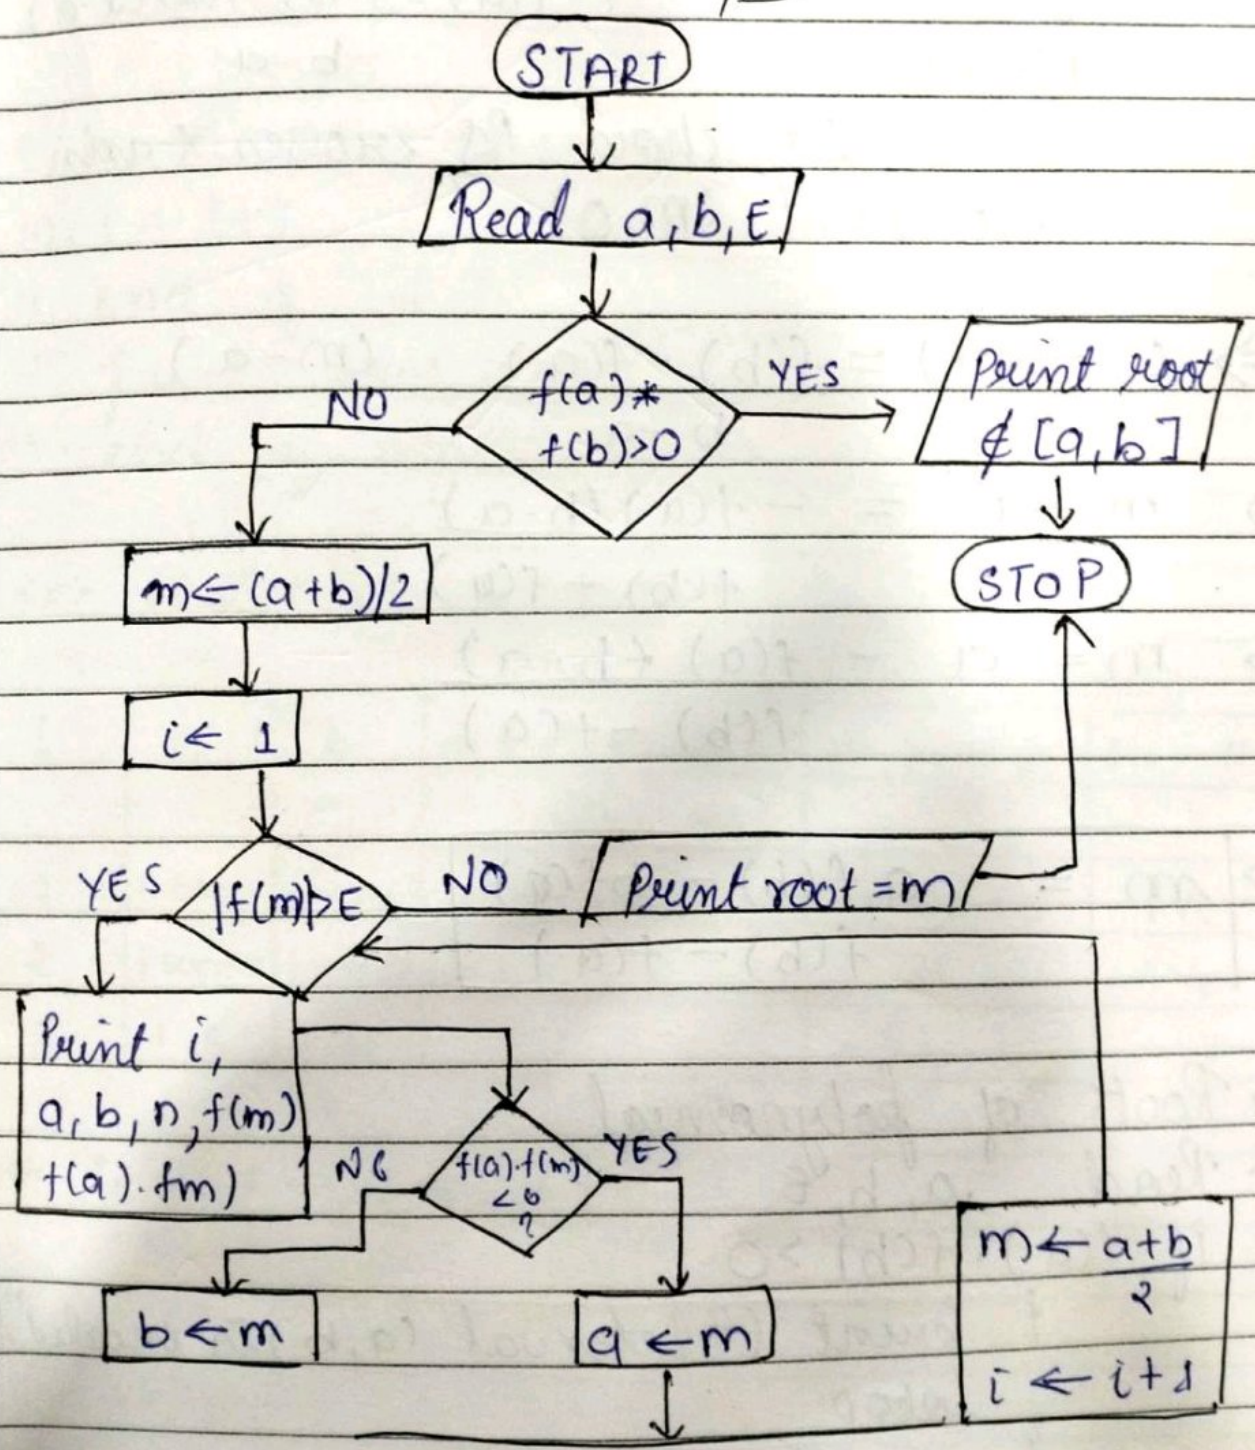 START
Read a, b, E
f(a)*
f(b)>0
NO
YES
Print root
∉ [a, b]
STOP
m ← (a+b)/2
i ← 1
|f(m)|>E
YES
NO
Print root = m
Print i,
a, b, n, f(m)
f(a).fm)
f(a).f(m)
<0
?
NO
YES
b ← m
a ← m
m ← a+b
2
i ← i+1